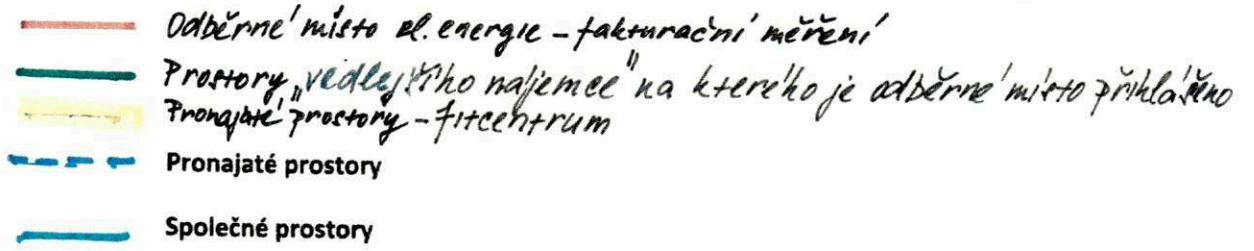 Odběrné místo el. energie - fakturační měření
Prostory „vedlejšího nájemce" na kterého je odběrné místo přihlášeno
Pronajaté prostory - fitcentrum
Pronajaté prostory
Společné prostory